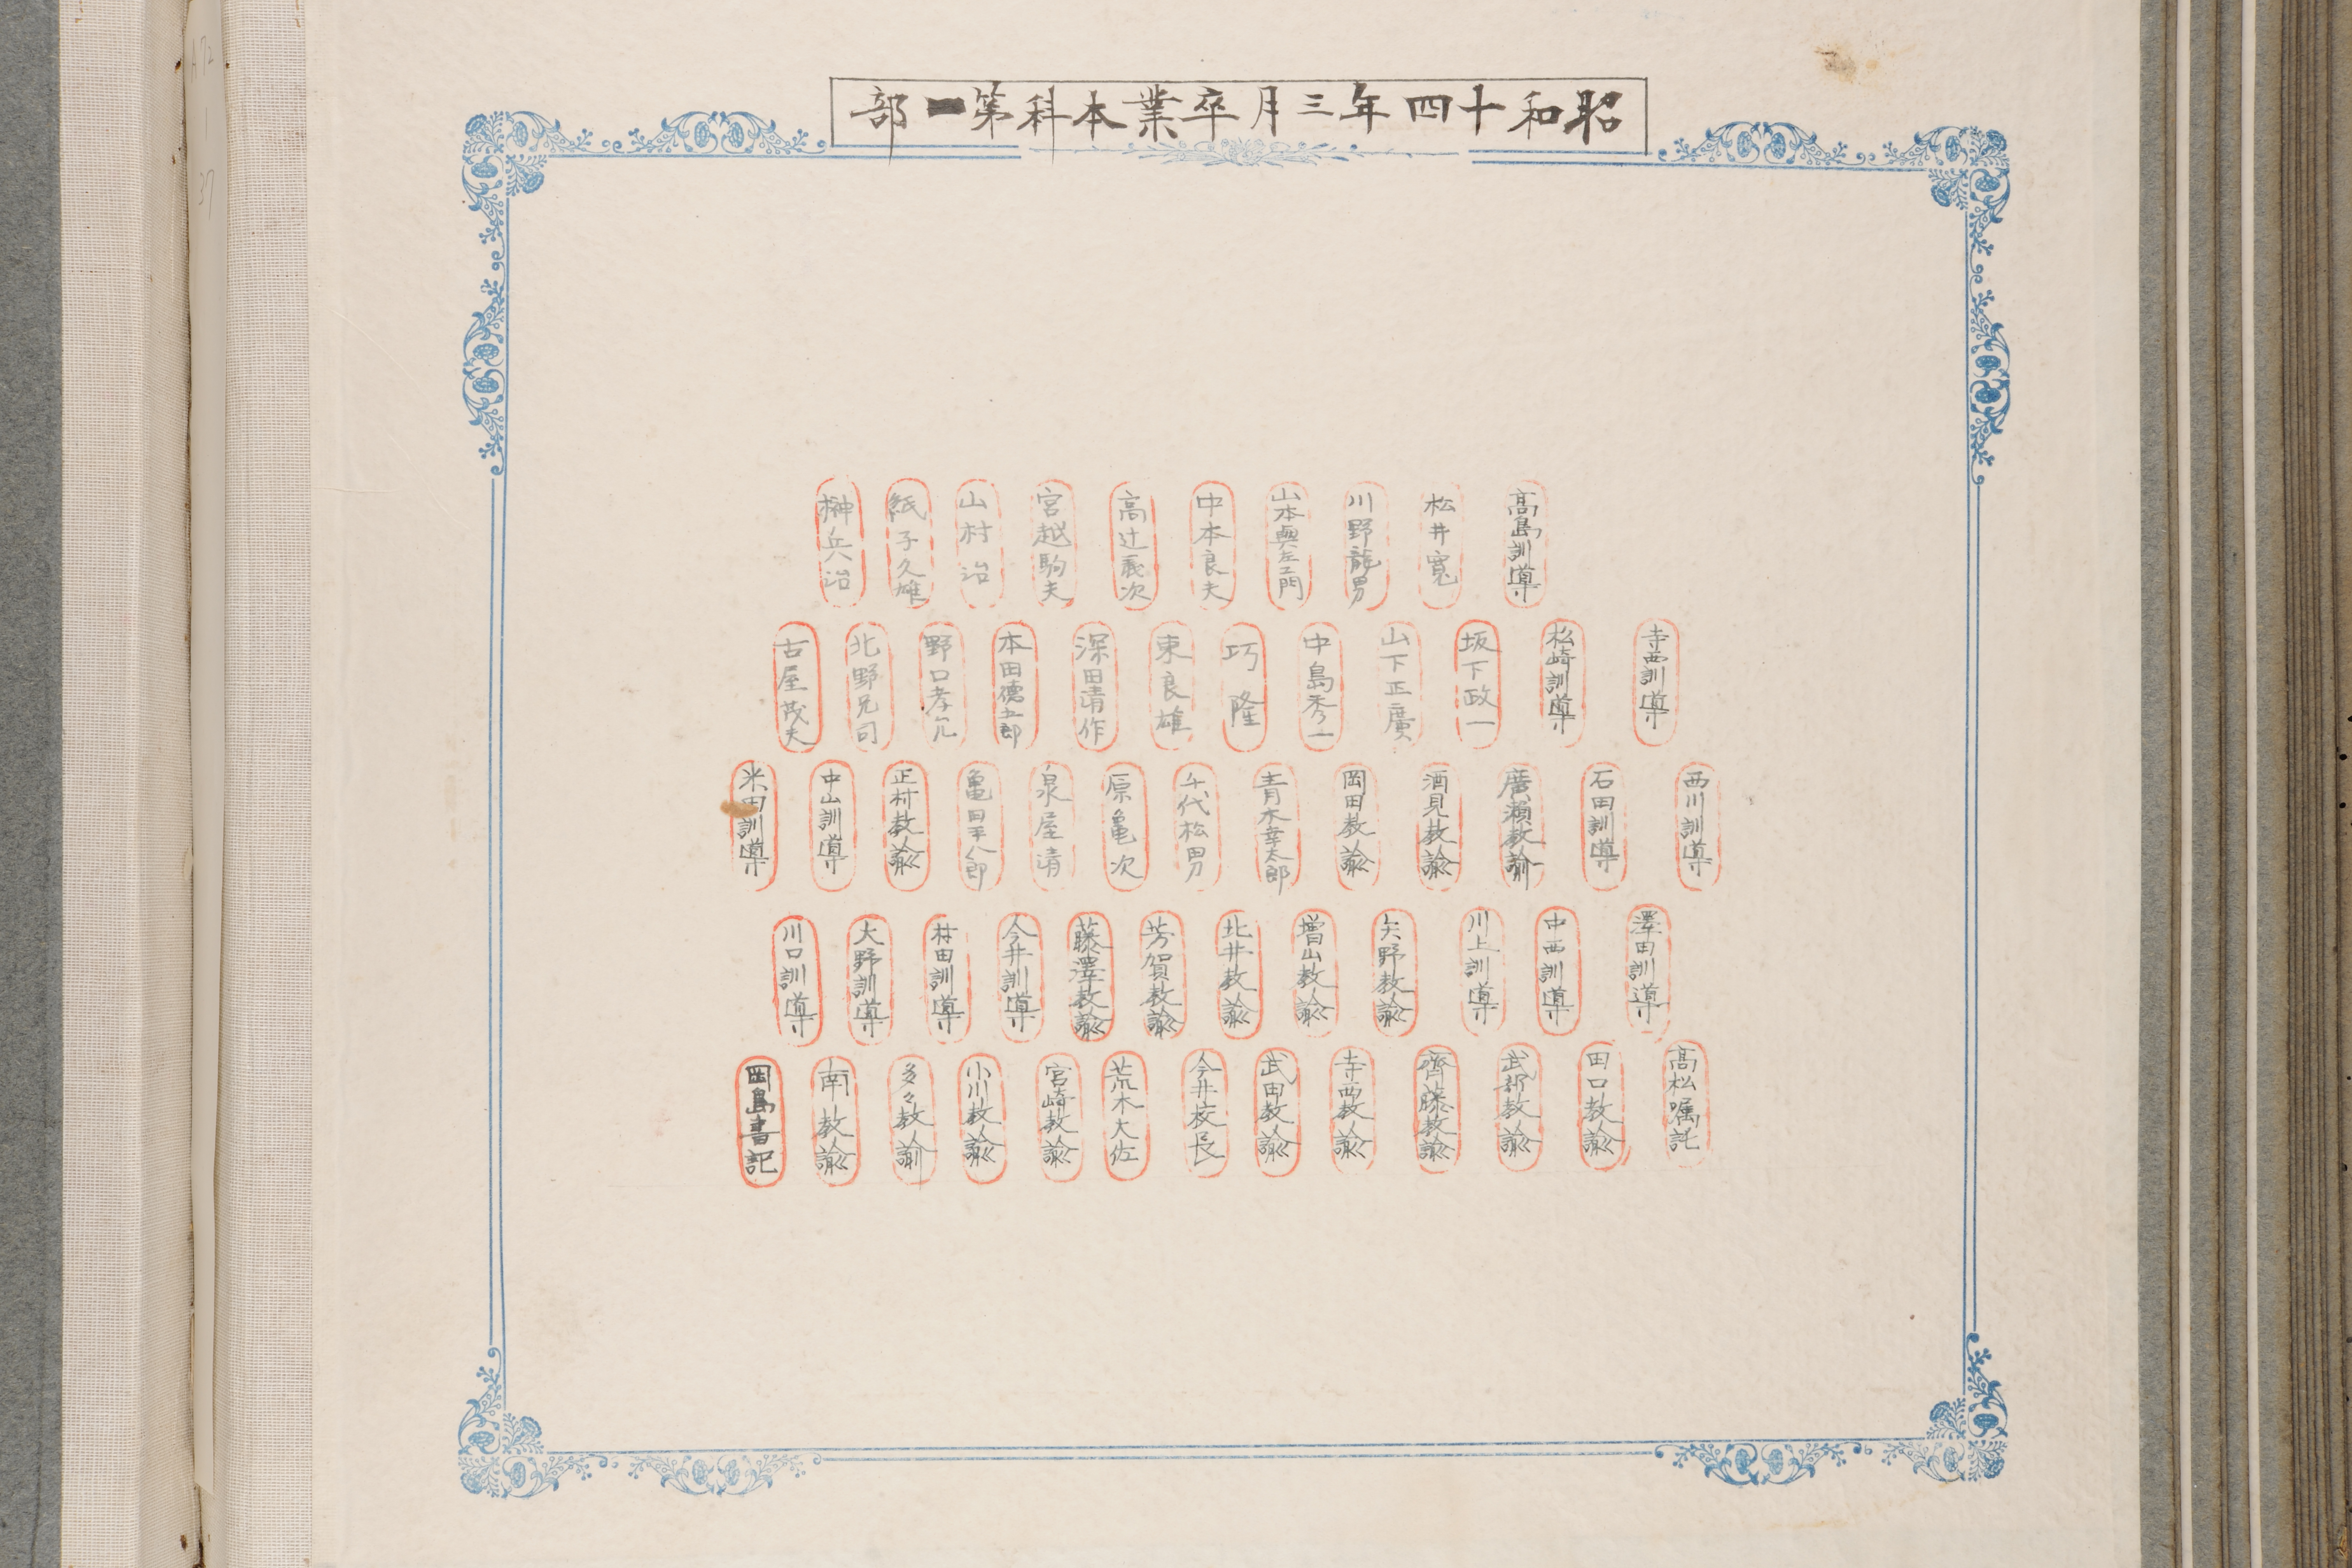 昭和十四年三月卒業本科第一部
高島訓導
松井寛
川野龍男
山本與左エ門
中本良夫
高辻義次
宮越駒夫
山村治
紙子久雄
榊兵治
寺西訓導
松崎訓導
坂下政一
山下正廣
中島秀一
巧隆
東良雄
深田清作
本田德五郎
野口孝允
北野兄司
古屋茂夫
西川訓導
石田訓導
廣瀬教諭
酒見教諭
岡田教諭
青木幸太郎
千代松男
原亀次
泉屋清
亀田平八郎
正村教諭
中山訓導
米田訓導
澤田訓導
中西訓導
川上訓導
矢野教諭
増山教諭
北井教諭
芳賀教諭
藤澤教諭
今井訓導
村田訓導
大野訓導
川口訓導
髙松嘱託
田口教諭
武部教諭
齊藤教諭
寺西教諭
武田教諭
今井校長
荒木大佐
宮崎教諭
小川教諭
多々教諭
南教諭
岡島書記